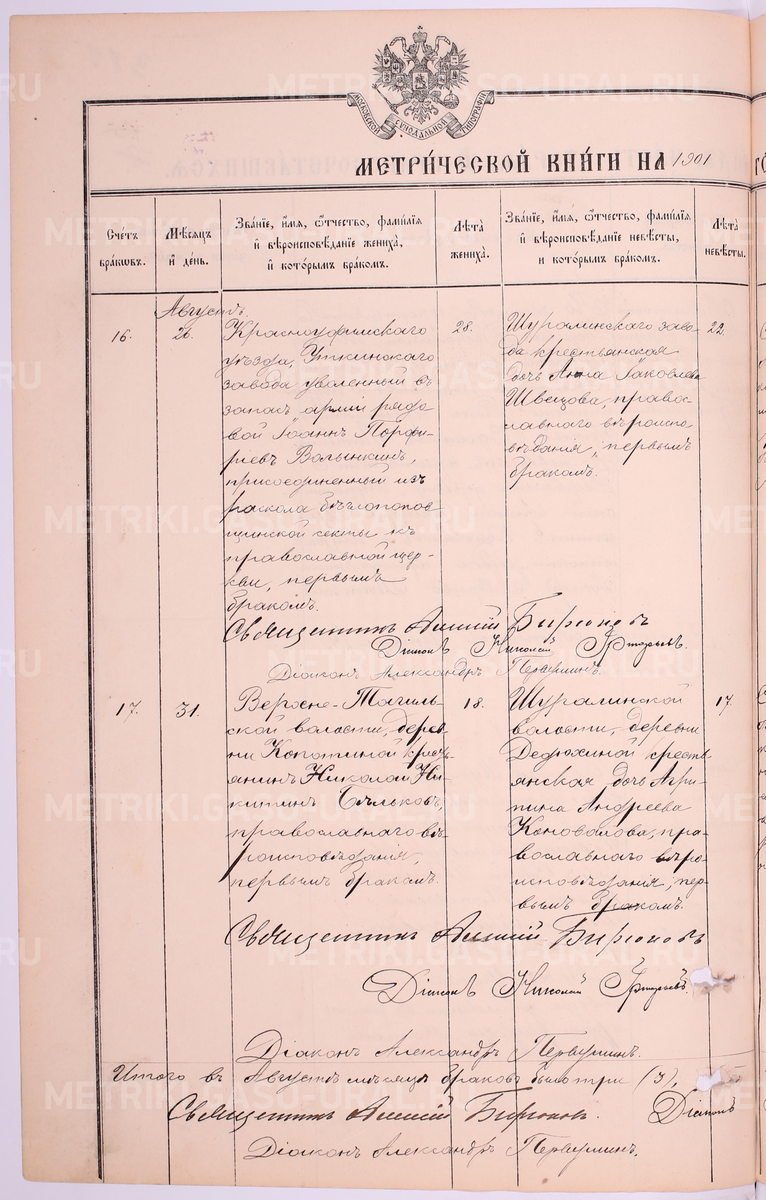 МОСКОВСКОЙ СѴНОДАЛЬНОЙ ТИПОГРАФІИ
МЕТРИ́ЧЕСКОЙ КНИ́ГИ НА 1901
Счéтъ бракωвъ.
Мѣсяцъ и дéнь.
Звáніе, и́мя, ѻ́тчество, фами́лія
и вѣроисповѣ́даніе женихá,
и котóрымъ брáкомъ.
Лѣта женихá.
Звáніе, и́мя, ѻ́тчество, фами́лія
и вѣроисповѣ́даніе невѣ́сты,
и котóрымъ брáкомъ.
Лѣта невѣ́сты.
Августъ.
16.
26.
Красноуфимскаго
уѣзда, Уткинскаго
завода уволенный въ
запасъ арміи рядо
вой Іоаннъ Порфи-
ріевъ Волынкинъ,
присоединенный изъ
раскола бѣглопопов
щинской секты къ
православной цер-
кви, первымъ
бракомъ.
28.
Шуралинскаго заво
да крестьянская
дочь Анна Іаковлева
Швецова, право-
славнаго вѣроиспо
вѣданія, первымъ
бракомъ.
22.
Священникъ Алексій Бирюковъ
Діаконъ Николай
Діаконъ Александръ Первушинъ.
17.
31.
Верхне-Тагиль-
ской волости, дерев
ни Копотиной крестъ
янинъ Николай Ни-
китинъ Бѣльковъ,
православнаго вѣ-
роисповѣданія,
первымъ бракомъ.
18.
Шуралинской
волости, деревни
Дедюхиной кресть
янская дочь Агри-
пина Андреева
Коновалова, пра-
вославнаго вѣро-
исповѣданія, пер-
вымъ бракомъ.
17.
Священникъ Алексій Бирюковъ
Діаконъ Николай
Діаконъ Александръ Первушинъ.
Итого въ Августѣ мѣсяцѣ браковъ было три (3).
Священникъ Алексій Бирюковъ. Діаконъ
Діаконъ Александръ Первушинъ.
METRIKI.GASO-URAL.RU